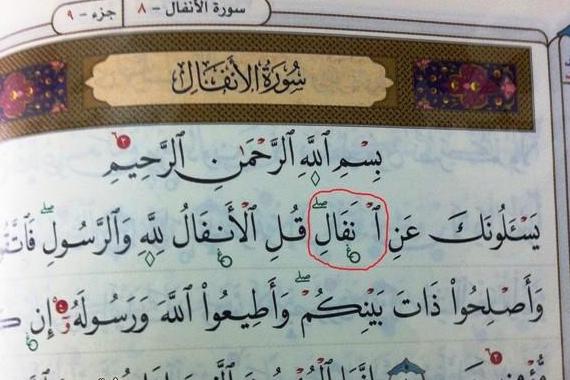 سورة الأنفال - ٨ جزء - ٩
سُورَةُ الأَنفَالِ
بِسْمِ ٱللَّهِ ٱلرَّحْمَٰنِ ٱلرَّحِيمِ
يَسْـَٔلُونَكَ عَنِ ٱ نفَالِ قُلِ ٱلْأَنفَالُ لِلَّهِ وَٱلرَّسُولِ
وَأَصْلِحُوا۟ ذَاتَ بَيْنِكُمْ وَأَطِيعُوا۟ ٱللَّهَ وَرَسُولَهُۥ إِن